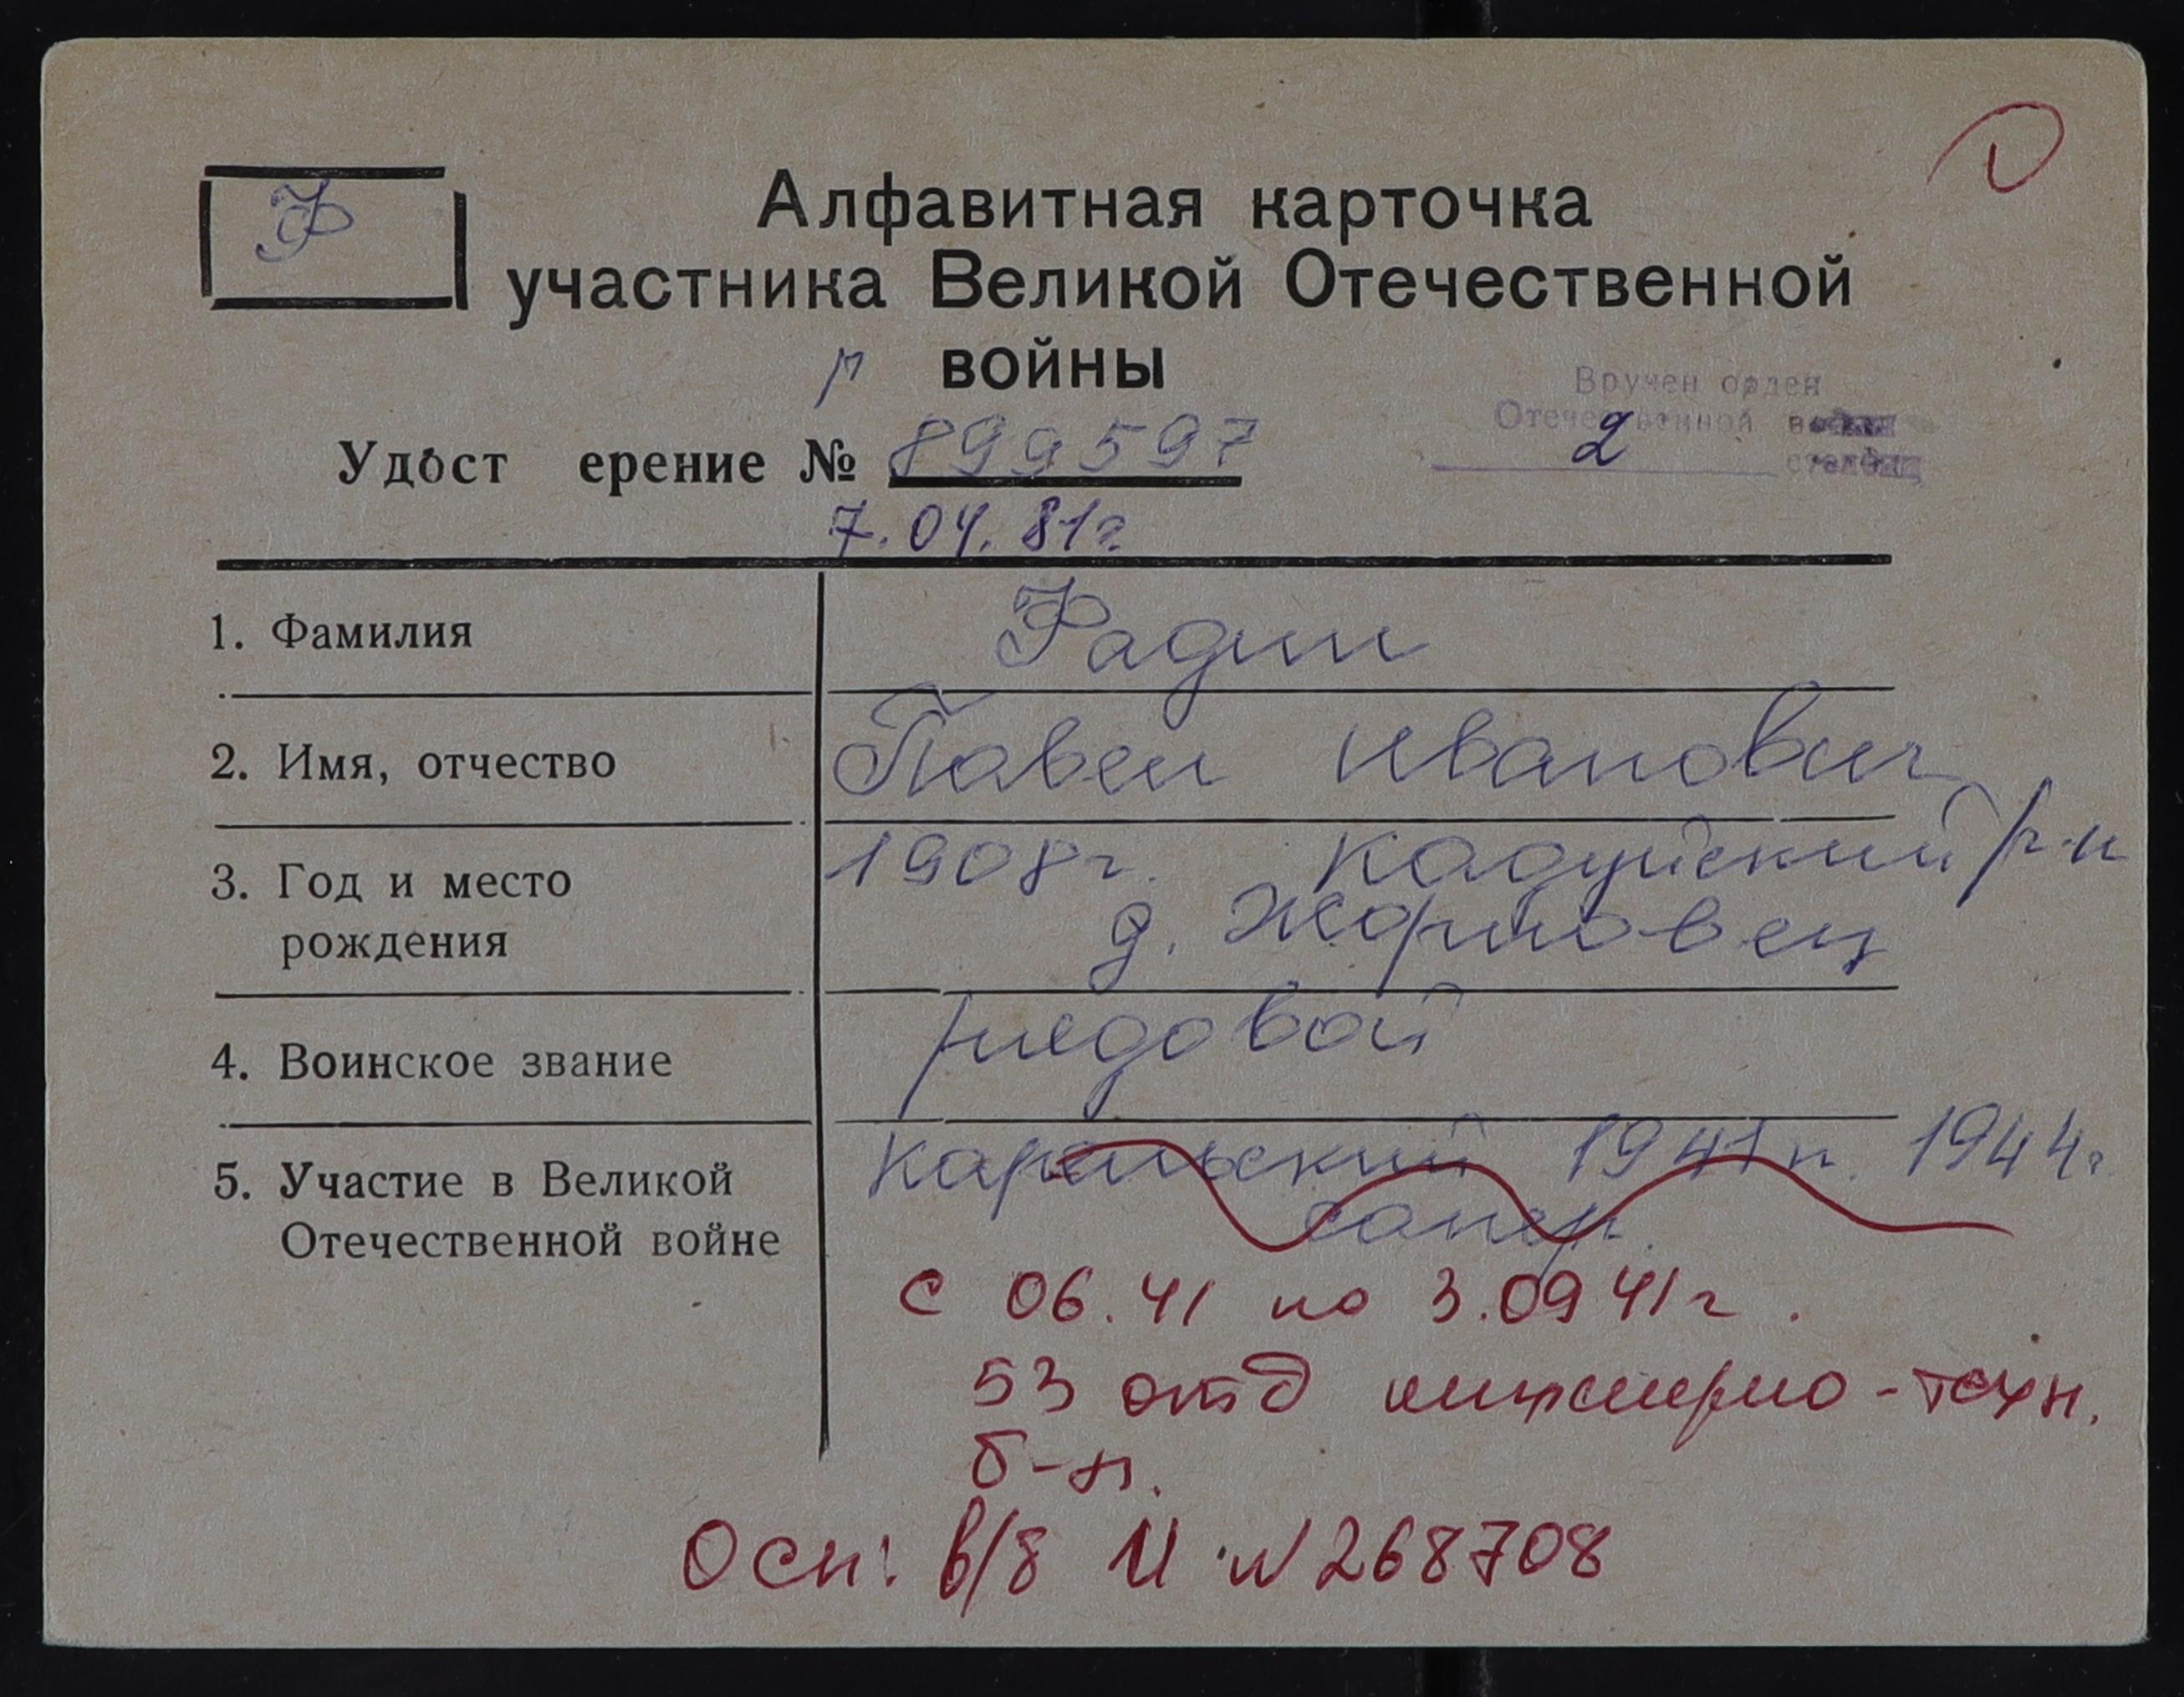 Ф
Алфавитная карточка
участника Великой Отечественной
войны
Р
Вручен орден
Отечественной войны
2 степени
Удост ерение № 899597
7.04.81г.
1. Фамилия Фадин
2. Имя, отчество Павел Иванович
3. Год и место рождения
1908г. Кадуйский р-н
д. Жорновец
4. Воинское звание рядовой
5. Участие в Великой Отечественной войне
Карельский 1941 н. 1944г
сапер.
с 06.41 по 3.09 41г.
53 отд инженерно-техн.
б-н.
Осн: в/б И №268708